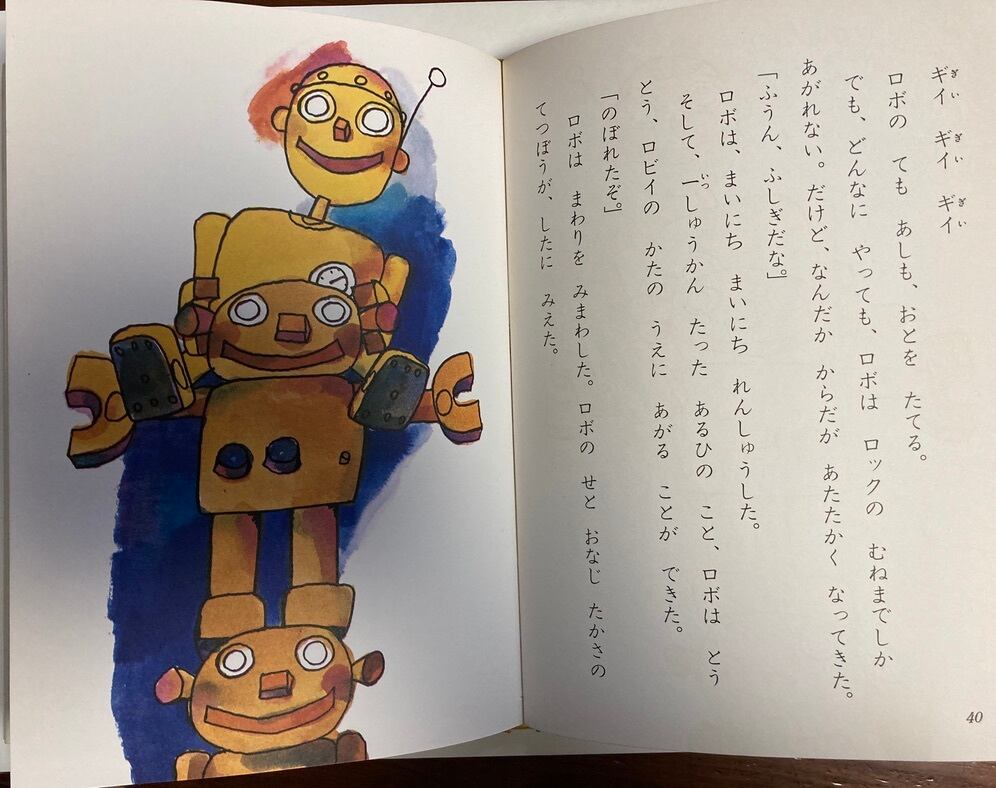 ギイ ギイ ギイ
ロボの ても あしも、おとを たてる。
でも、どんなに やっても、ロボは ロックの むねまでしか
あがれない。だけど、なんだか からだが あたたかく なってきた。
「ふうん、ふしぎだな。」
ロボは、まいにち まいにち れんしゅうした。
そして、一しゅうかん たった あるひの こと、ロボは とう
とう、ロビイの かたの うえに あがる ことが できた。
「のぼれたぞ。」
ロボは まわりを みまわした。ロボの せと おなじ たかさの
てつぼうが、したに みえた。
40